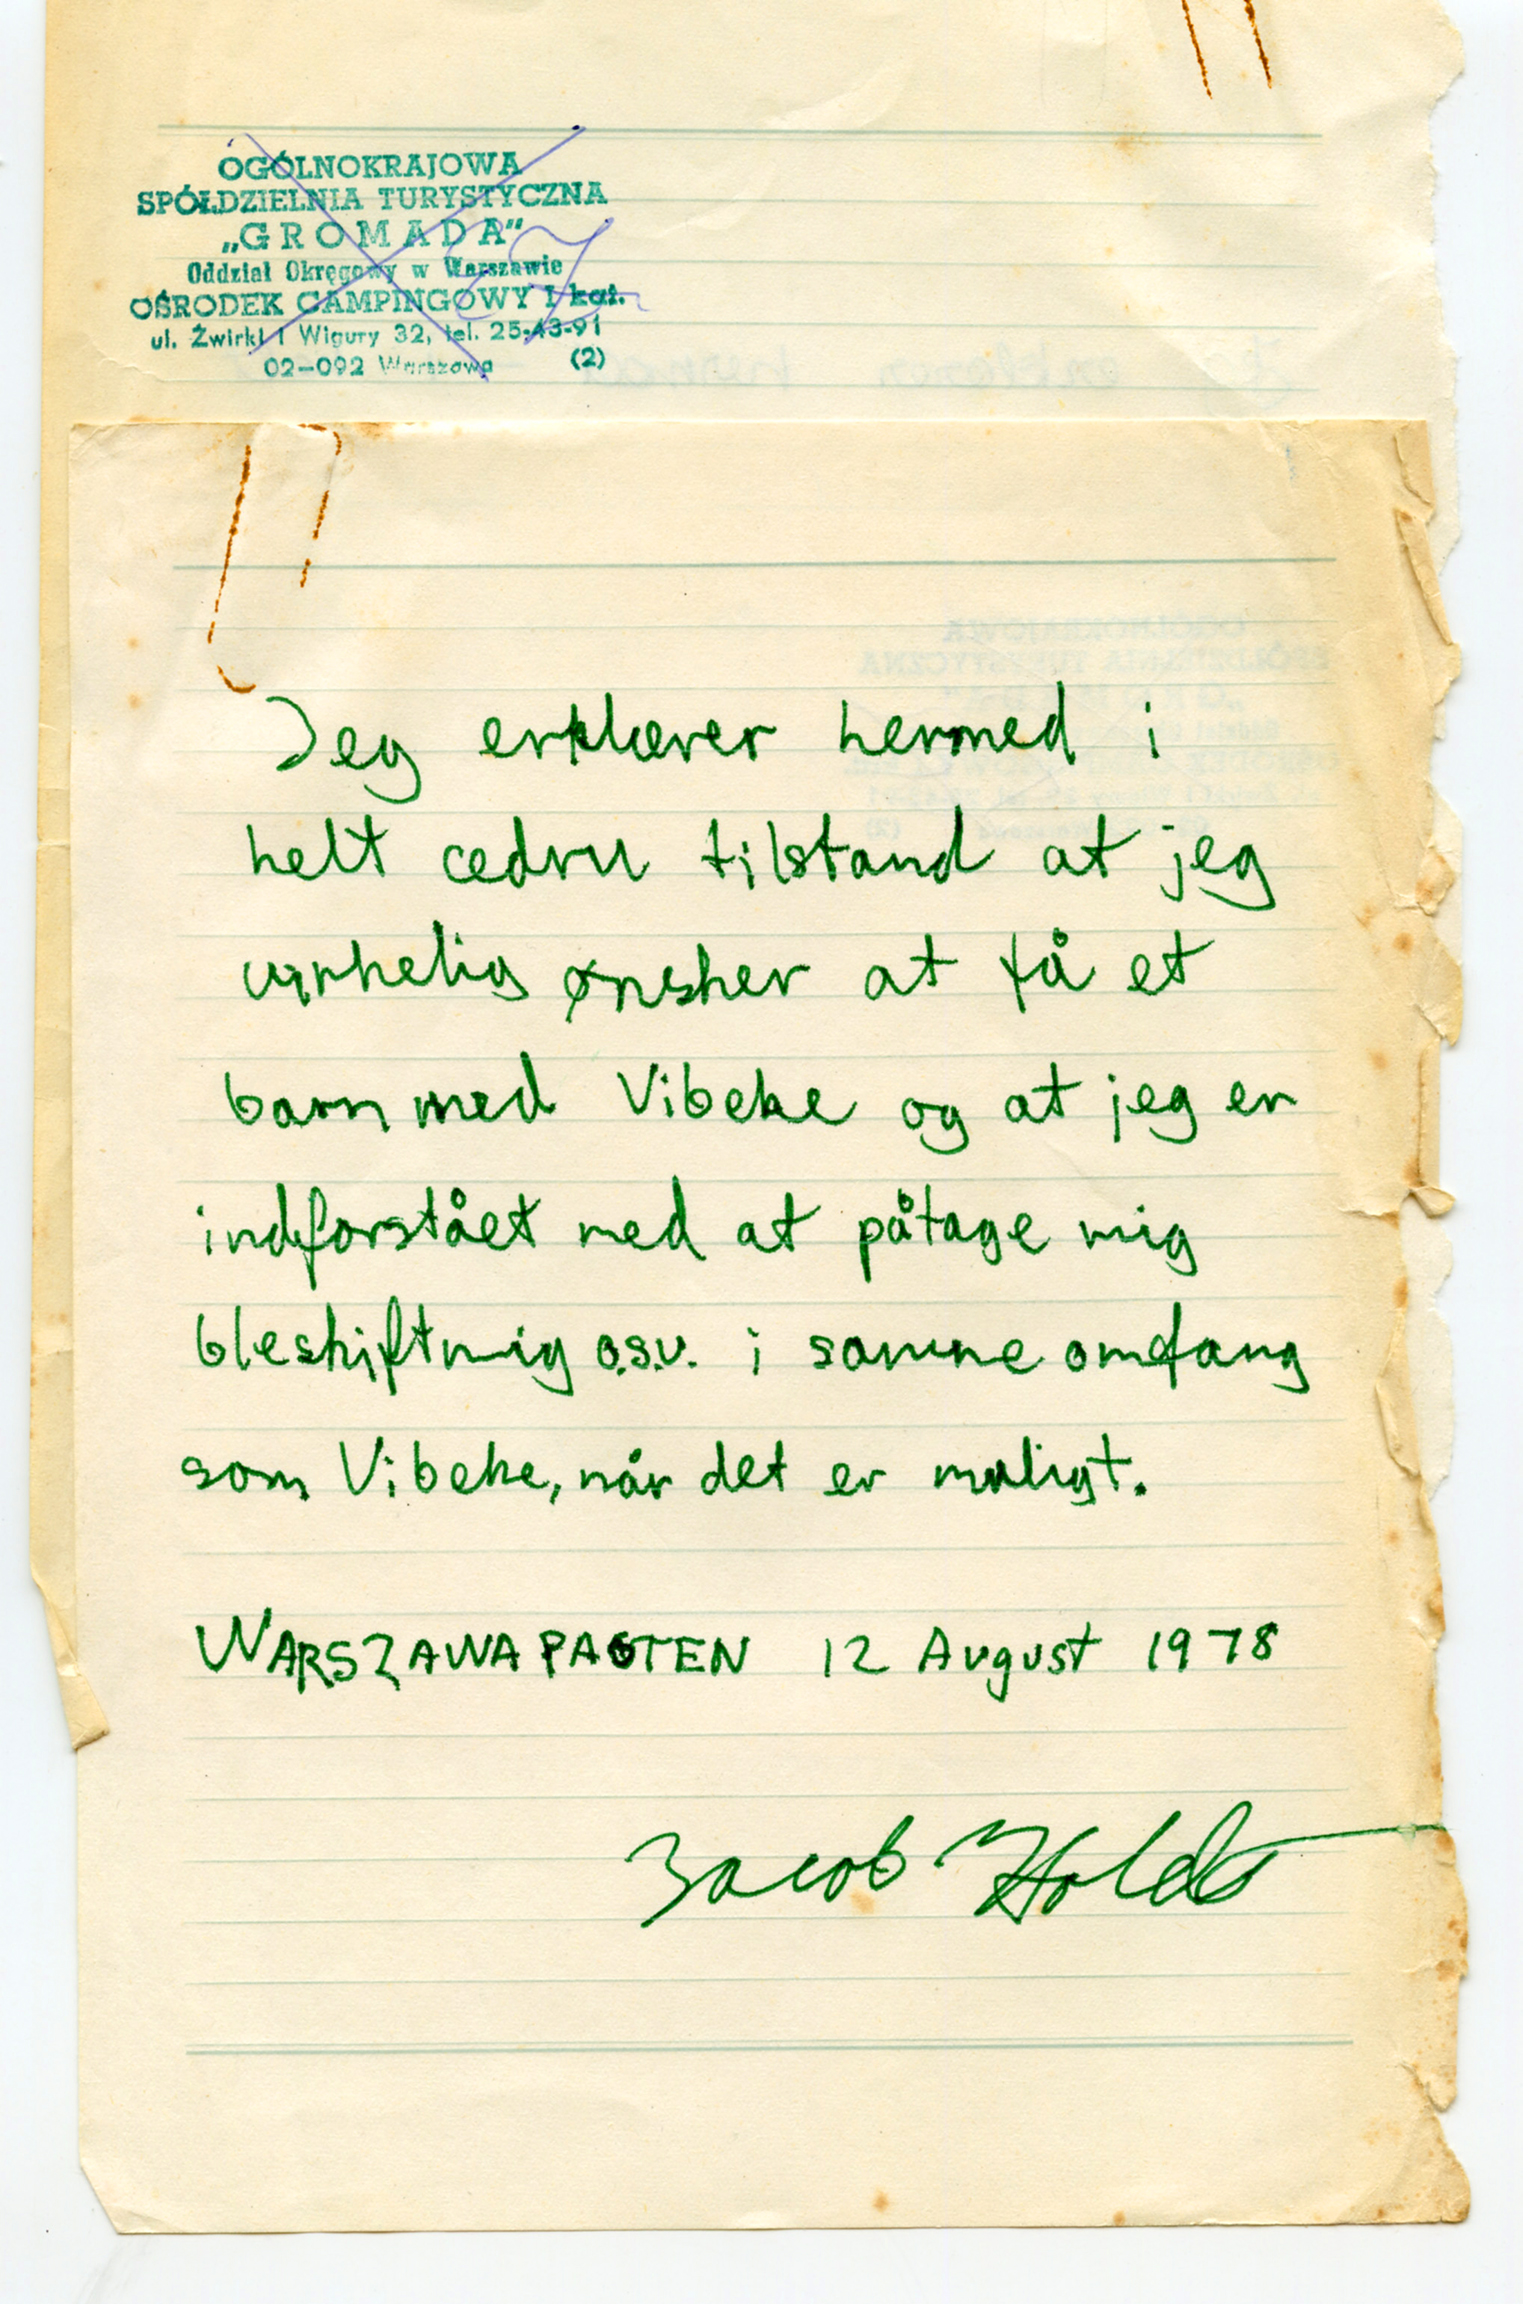 OGÓLNOKRAJOWA
SPÓŁDZIELNIA TURYSTYCZNA
„GROMADA"
Oddział Okręgowy w Warszawie
OŚRODEK CAMPINGOWY I kat.
ul. Żwirki i Wigury 32, tel. 25-43-91
02-092 Warszawa (2)
Jeg erklærer hermed i
helt ædru tilstand at jeg
virkelig ønsker at få et
barn med Vibeke og at jeg er
indforstået med at påtage mig
bleskiftnig o.s.v. i samme omfang
som Vibeke, når det er muligt.
WARSZAWA PAGTEN 12 August 1978
Jacob Holdt